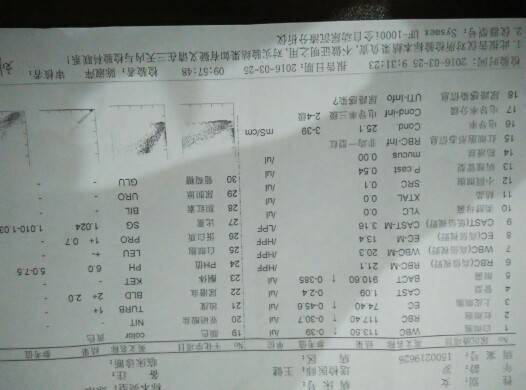 性 别:女 病 房: 标本类型:
年 龄: 岁 送检医师:王 健 备 注:
病案号:1500219626 病 区: 临床诊断:
No 尿沉渣项目 英文名称 结果 参考值 单位 No 干化学项目 英文名称 结果 参考值
1 白细胞 WBC 113.50 ↑ 0-39 /ul 19 颜色 color 黄色
2 红细胞 RBC 117.40 ↑ 0-30.7 /ul 20 亚硝酸盐 NIT - -
3 上皮细胞 EC 74.40 ↑ 0-45.6 /ul 21 浊度 TURB 1+
4 管型 CAST 1.09 0-2.4 /ul 22 尿潜血 BLD 2+ 2.0 -
5 细菌 BACT 910.60 ↑ 0-385 /ul 23 酮体 KET - -
6 RBC(高倍视野) RBC-M 21.1 /HPF 24 PH值 PH 6.0 5.0-7.5
7 WBC(高倍视野) WBC-M 20.3 /HPF 25 白细胞 LEU +- -
8 EC(高倍视野) EC-M 13.4 /HPF 26 蛋白质 PRO 1+ 0.7 -
9 CAST(低倍视野) CAST-M 3.16 /LPF 27 比重 SG 1.024 1.010-1.03
10 类酵母菌 YLC 0.0 /ul 28 胆红素 BIL - -
11 结晶 XTAL 0.0 /ul 29 尿胆原 URO - -
12 小圆细胞 SRC 0.1 /ul 30 葡萄糖 GLU - -
13 病理管型 P.cast 0.54 /ul
14 粘液丝 mucus 0.00 /ul
15 红细胞形态信息 RBC-Inf 非均一型红
16 电导率 Cond 25.1 3-39 mS/cm
17 电导率分级 Cond-Inf 电导率三级 2-4级
18 尿路感染信息 UTI-Info 尿路感染?
检验时间:2016-03-25 9:31:23 报告日期:2016-03-25 09:57:48 检验者:陈淑萍 审核者:
1. 此报告仅对所检验标本结果负责,不做证明之用,对实验结果如有疑义请在三天内与检验科联系!
2. 仪器型号:Sysmex UF-1000i 全自动尿沉渣分析仪